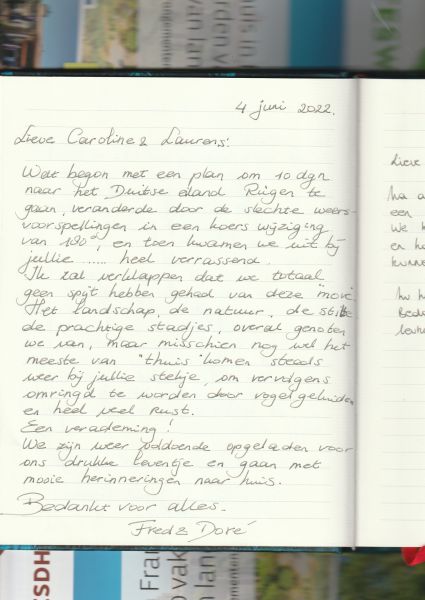 uis in
rden v
van lan
4 juni 2022.
Lieve Caroline & Laurens:
Wat begon met een plan om 10 dgn
naar het Duitse eland Rügen te
gaan, veranderde door de slechte weers-
voorspellingen in een koers wijziging
van 180°, en toen kwamen we uit bij
jullie ...... heel verrassend.
Ik zal verklappen dat we totaal
geen spijt hebben gehad van deze "move".
Het landschap, de natuur, de stilte
de prachtige stadjes, overal genoten
we van, maar misschien nog wel het
meeste van "thuis" komen steeds
weer bij jullie stekje, om vervolgens
omringd te worden door vogelgeluiden
en heel veel rust.
Een verademing!
We zijn weer voldoende opgeladen voor
ons drukke leventje en gaan met
mooie herinneringen naar huis.
Bedankt voor alles.
Fred & Doré
Lieve
Na a
een
We k
en h
Beda
SDH
Fra
vak
lan